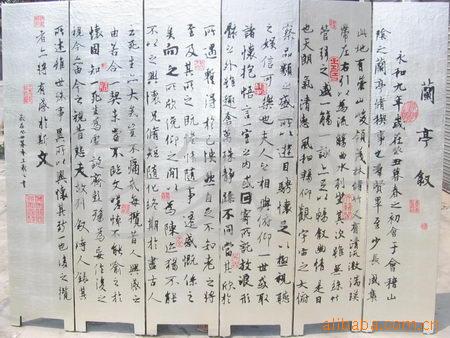 蘭亭叙
永和九年歲在癸丑暮春之初會于會稽山
陰之蘭亭脩禊事也羣賢畢至少長咸集
此地有崇山峻領茂林脩竹又有清流激湍映
帶左右引以為流觴曲水列坐其次雖無絲竹
管弦之盛一觴一詠亦足以暢叙幽情是日
也天朗氣清惠風和暢仰觀宇宙之大俯
察品類之盛所以遊目騁懷足以極視聽
之娛信可樂也夫人之相與俯仰一世或取
諸懷抱悟言一室之內或因寄所託放浪形
骸之外雖趣舍萬殊靜躁不同當其欣於
所遇暫得於己快然自足不知老之將
至及其所之既倦情隨事遷感慨係之
矣向之所欣俛仰之間以為陳迹猶不能
不以之興懷況脩短隨化終期於盡古人
云死生亦大矣豈不痛哉每攬昔人興感之
由若合一契未嘗不臨文嗟悼不能喻之於
懷固知一死生為虛誕齊彭殤為妄作後之
視今亦由今之視昔悲夫故列叙時人錄其
所述雖世殊事異所以興懷其致一也後之攬
者亦將有感於斯文
alibaba.com.cn